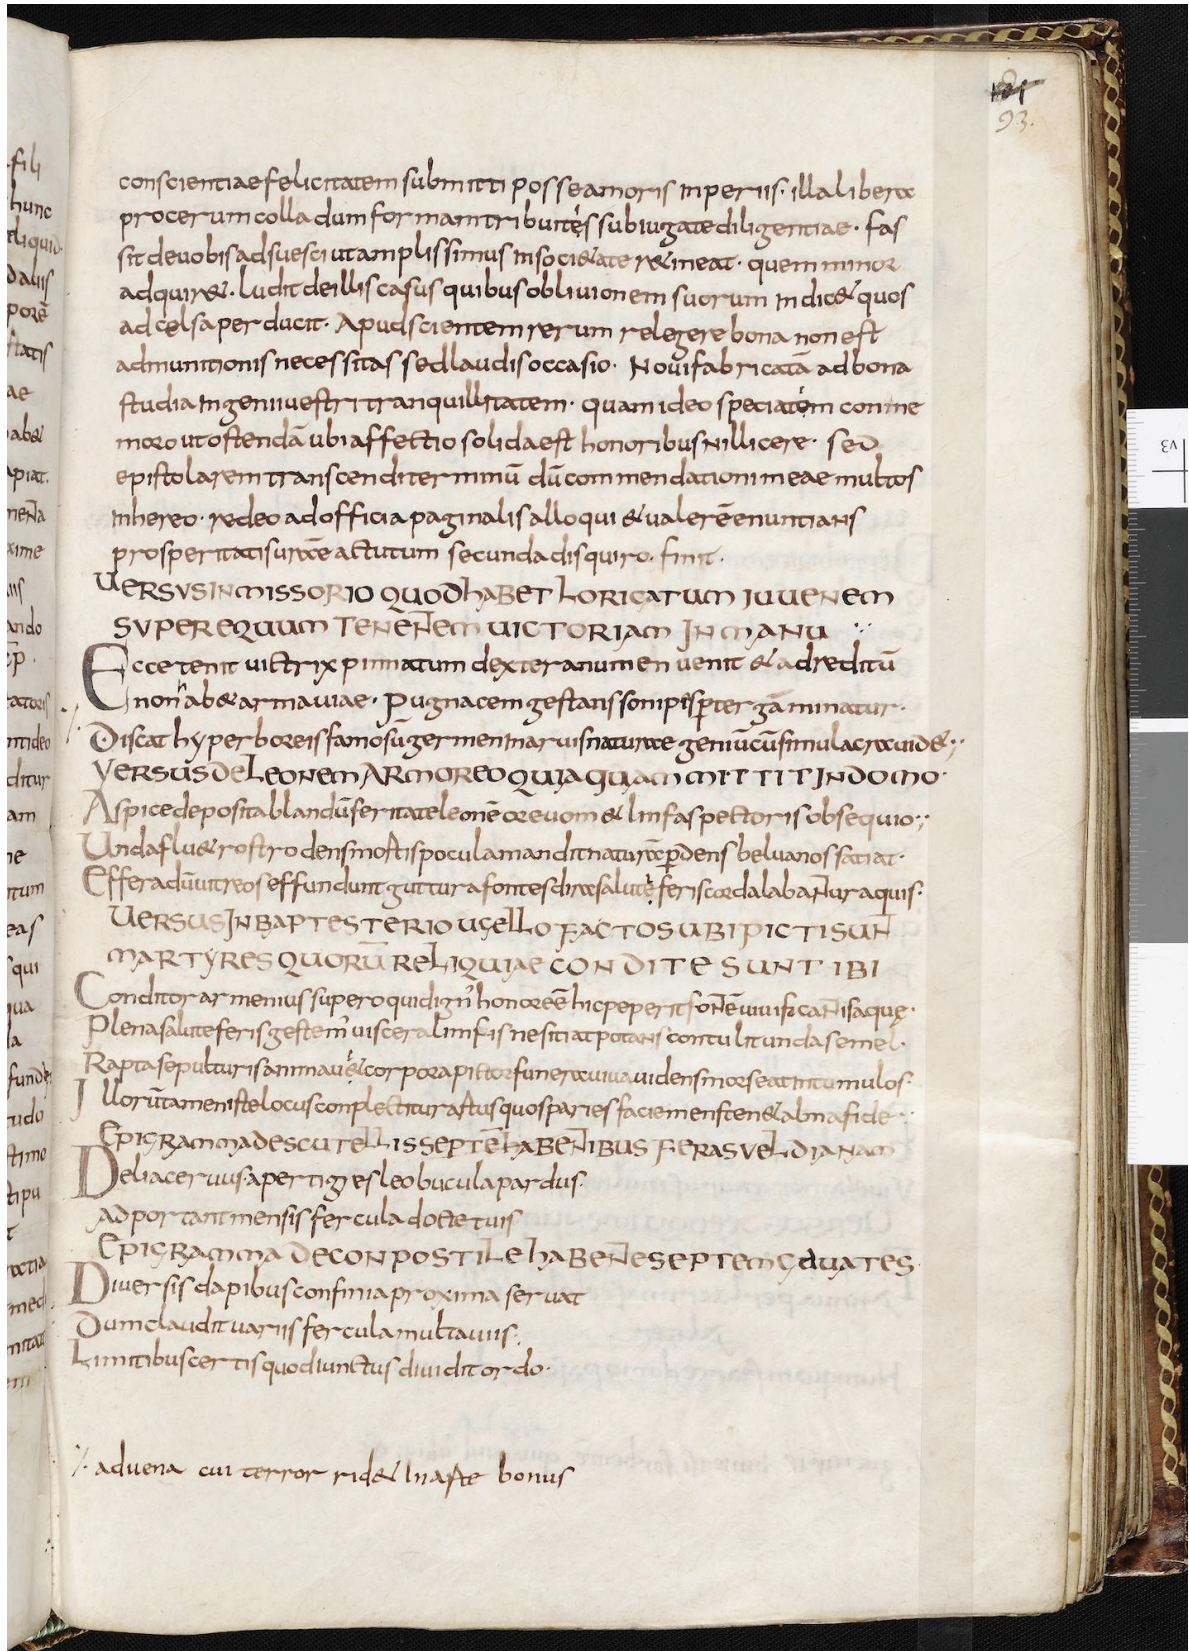 181
93.
conscientiae felicitatem submitti posse amoris inperiis. illa libera
procerum colla dum formam tribuites subiugate diligentiae. fas
sit de vobis adsuesci ut amplissimus in societate retineat. quem minor
adquiret. ludit de illis casus quibus oblivionem suorum indicet quos
ad celsa perducit. Apud scientem rerum relegere bona non est
admunitionis necessitas sed laudis occasio. Novi fabricatā ad bona
studia ingenii vestri tranquillitatem. quam ideo speciatem conme
moro ut ostendā ubi affectio solida est honoribus nil licere. sed
epistolarem transcendi terminū dū commendationi meae multos
inhereo. redeo ad officia paginalis alloqui & valerē enuntians
prosperitatis urae actutum secunda disquiro. finit.
VERSVS IN MISSORIO QUOD HABET LORICATUM JUVENEM
SUPER EQUUM TENENTEM VICTORIAM IN MANU
Ecce tenit victrix pinnatum dextera numen venit & ad reditū
non habet arma viae. Pugnacem gestans sonipes per terga minatur.
Discat hyperboreis famosū germen in arvis naturae geniū cū simulacra videt
VERSUS DE LEONE MARMOREO QUI AQUAM MITTIT IN DOMO.
Aspice deposita blandū feritate leonē ore vomet linfas pectoris obsequio
Unda fluet rostro dens mostis pocula mandit natura perdens belua nos satiat.
Efferadū vitreos effundunt guttura fontes dira salutē feris corda labantur aquis.
VERSUS IN BAPTESTERIO UCELLO FACTOS UBI PICTI SUNT
MARTYRES QUORŪ RELIQUIAE CONDITE SUNT IBI
Conditor armenius supero qui dign' honore ē hic peperit fontē vivificantis aque.
Plena salute feris gestem' viscera limfis ne sitiat potans contulit unda semel.
Rapta sepulturis animavet corpora pictor funera viva videns morseat in tumulos.
Illorū tamen iste locus conplectitur astus quos paries faciem enstendet alma fide.
EPIGRAMMA DE SCUTELLIS SEPTĒ HABENTIBUS FERAS VEL DIANAM
Delia cervus aper tigres leo bucula pardus.
Adportant mensis fercula docte tuis
EPIGRAMMA DE CONPOSTILE HABENTE SEPTEM CAVATES
Diversis dapibus confinia proxima servat
Dum claudit variis fercula multa viis.
Limitibus certis quod iunctus dividit ordo.
advena cui terror ridet in aste bonus